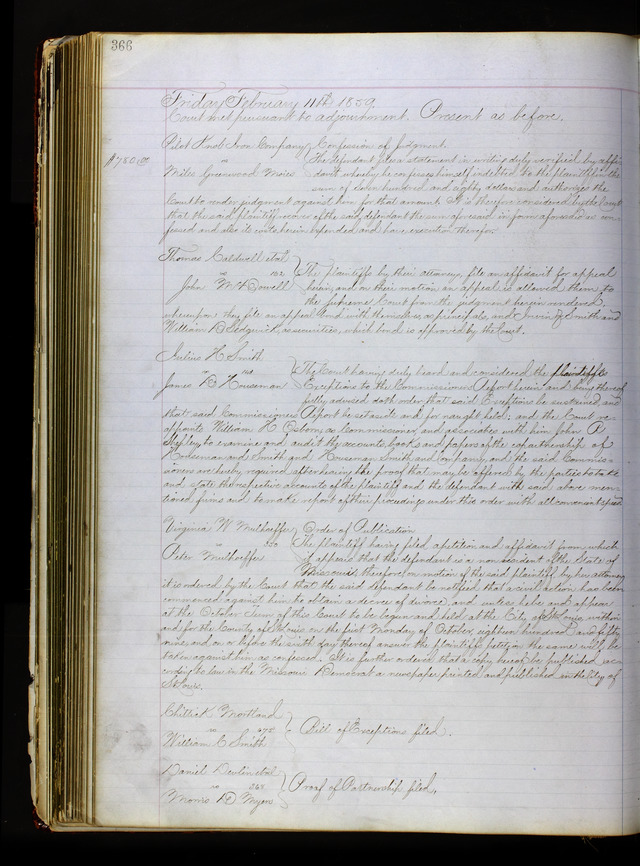 366
Friday February 11th 1859
Court met pursuant to adjournment. Present as before.
Pilot Knob Iron Company } Confession of Judgment
$780.00 vs The defendant files a statement in writing duly verified by affi-
Miles Greenwood Moies davit whereby he confesses himself indebted to the plaintiff in the
sum of seven hundred and eighty dollars and authorizes the
Court to render judgment against him for that amount. It is therefore considered by the Court
that the said plaintiff recover of the said defendant the sum aforesaid in form aforesaid so con-
fessed and also its costs herein expended and have execution therefor.
Thomas Caldwell et al
vs 182 } The plaintiffs by their attorney, file an affidavit for appeal
John McDowell herein, and on their motion, an appeal is allowed them, to
the Supreme Court from the judgment herein rendered,
whereupon they file an appeal bond with themselves as principals, and Irwin Z Smith and
William D Sedgwick, as securities, which bond is approved by the Court.
Julius H. Smith
vs } The Court having duly heard and considered the plaintiff's
James D. Houseman Exceptions to the Commissioners Report herein and being thereof
fully advised doth order that said Exceptions be sustained, and
that said Commissioners Report be set aside and for naught held; and the Court re-
appoints William H Osborn, as Commissioner, and associates with him John R
Shepley, to examine and audit the accounts, books and papers of the copartnerships of
Houseman and Smith and Houseman Smith and Company, and the said Commis-
sioners are hereby required, after hearing the proof that may be offered by the parties to take
and state the respective accounts of the plaintiff and the defendant with said above men-
tioned firms and to make report of their proceedings under this order with all convenient speed.
Virginia W. Mulhoeffer } Order of Publication
vs 350 The plaintiff having filed a petition and affidavit from which
Peter Mulhoeffer it appears that the defendant is a non resident of the State of
Missouri, therefore, on motion of the said plaintiff by her attorney
it is ordered by the Court that the said defendant be notified that a civil action has been
commenced against him to obtain a decree of divorce, and unless he be and appear
at the October Term of this Court to be begun and held at the City of St Louis, within
and for the County of St Louis on the first Monday of October, eighteen hundred and fifty
nine, and on or before the sixth day thereof answer the plaintiff's petition the same will be
taken against him as confessed. It is further ordered that a copy hereof be published ac-
cording to law in the Missouri Democrat a newspaper printed and published in the City of
St Louis.
Mortland
vs 275 } Bill of Exceptions filed.
William C Smith
Daniel Devlin et al
vs 264 } Proof of Partnership filed.
Morris D. Myers